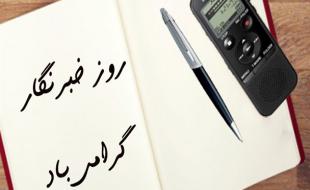 روز خبرنگار
گرامی باد